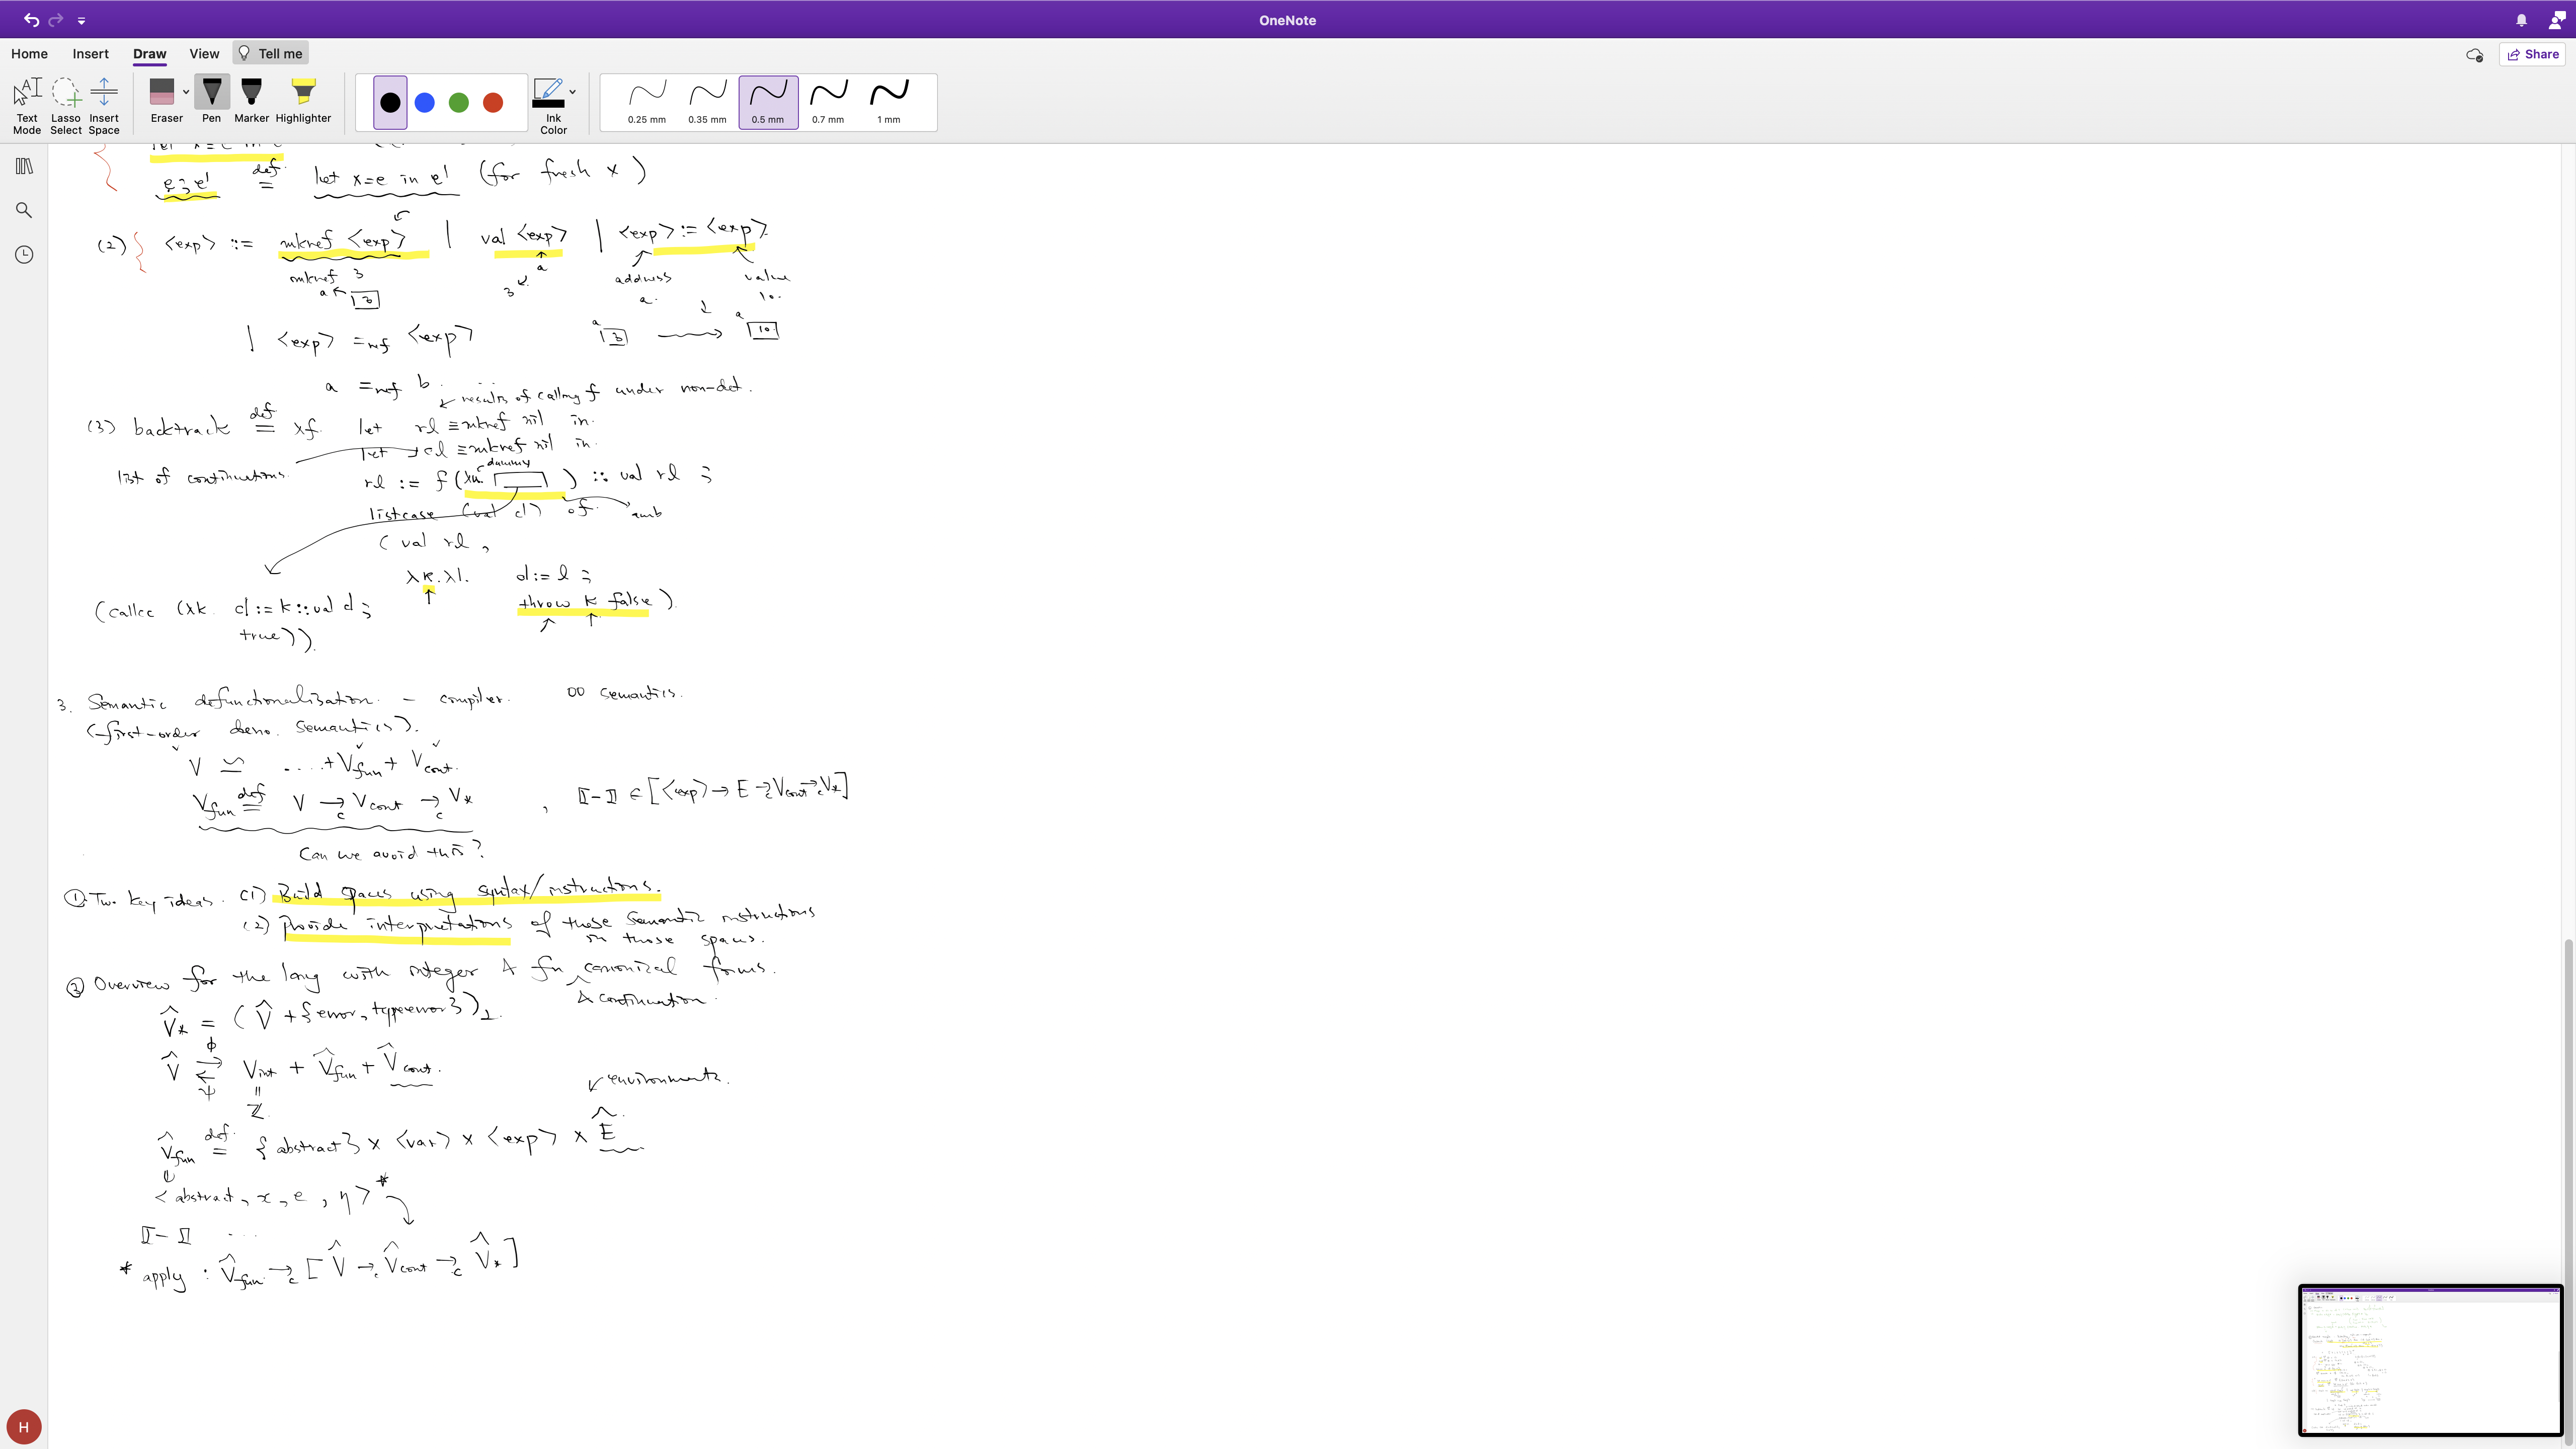 OneNote
Home Insert Draw View Tell me
Share
Text Mode
Lasso Select
Insert Space
Eraser
Pen
Marker
Highlighter
Ink Color
0.25 mm
0.35 mm
0.5 mm
0.7 mm
1 mm
e ; e' def= let x=e in e' (for fresh x)
(2) <exp> ::= mkref <exp> | val <exp> | <exp> := <exp>
mkref 3
a ← 3
3 ↙ ↑ a
address a.
value 10.
| <exp> =ref <exp>
a 3 → a 10
a =ref b.
results of calling f under non-det.
(3) backtrack def= λf. let rl ≡ mkref nil in
let cl ≡ mkref nil in
list of continuations.
dummy
rl := f (λx. ) :: val rl ;
listcase (val cl) of
amb
( val rl ,
λk.λl. cl := l ;
throw k false ).
(callcc (λk. cl := k :: val cl ;
true)).
3. Semantic defunctionalisation. – compiler. OO semantics.
(first-order deno. semantics).
V ≃ .... + Vfun + Vcont.
Vfun def= V →c Vcont →c V* , ⟦-⟧ ∈ [<exp> → E →c Vcont →c V*]
Can we avoid this?
① Two key ideas. (1) Build spaces using syntax/instructions.
(2) Provide interpretations of those semantic instructions
in those spaces.
② Overview for the lang with integer & fn canonical forms.
^ & continuation.
V̂* = ( V̂ + {error, typeerror} )⊥.
V̂ ⇄ Vint + V̂fun + V̂cont.
ϕ
ψ
=
ℤ.
environments.
V̂fun def= {abstract} × <var> × <exp> × Ê
<abstract, x, e, η> *
⟦-⟧ ....
* apply : V̂fun →c [ V̂ →c V̂cont →c V̂* ]
H